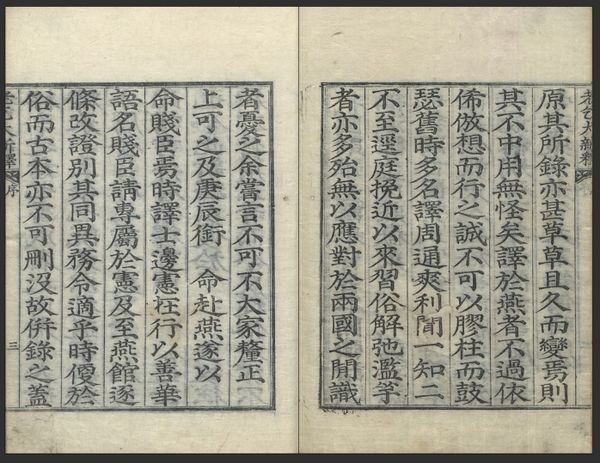 老乞大新釋
原其所錄亦甚草草且久而變焉則
其不中用無怪矣譯於燕者不過依
俙倣想而行之誠不可以膠柱而鼓
瑟舊時多名譯周通爽利聞一知二
不至逕庭挽近以來習俗解弛濫竽
者亦多殆無以應對於兩國之間識
者憂之余嘗言不可不大家釐正
上可之及庚辰銜 命赴燕遂以
命賤臣焉時譯士邊憲在行以善華
語名賤臣請專屬於憲及至燕館逐
條改證別其同異務令適乎時便於
俗而古本亦不可刪沒故倂錄之蓋
老乞大新釋 序 三